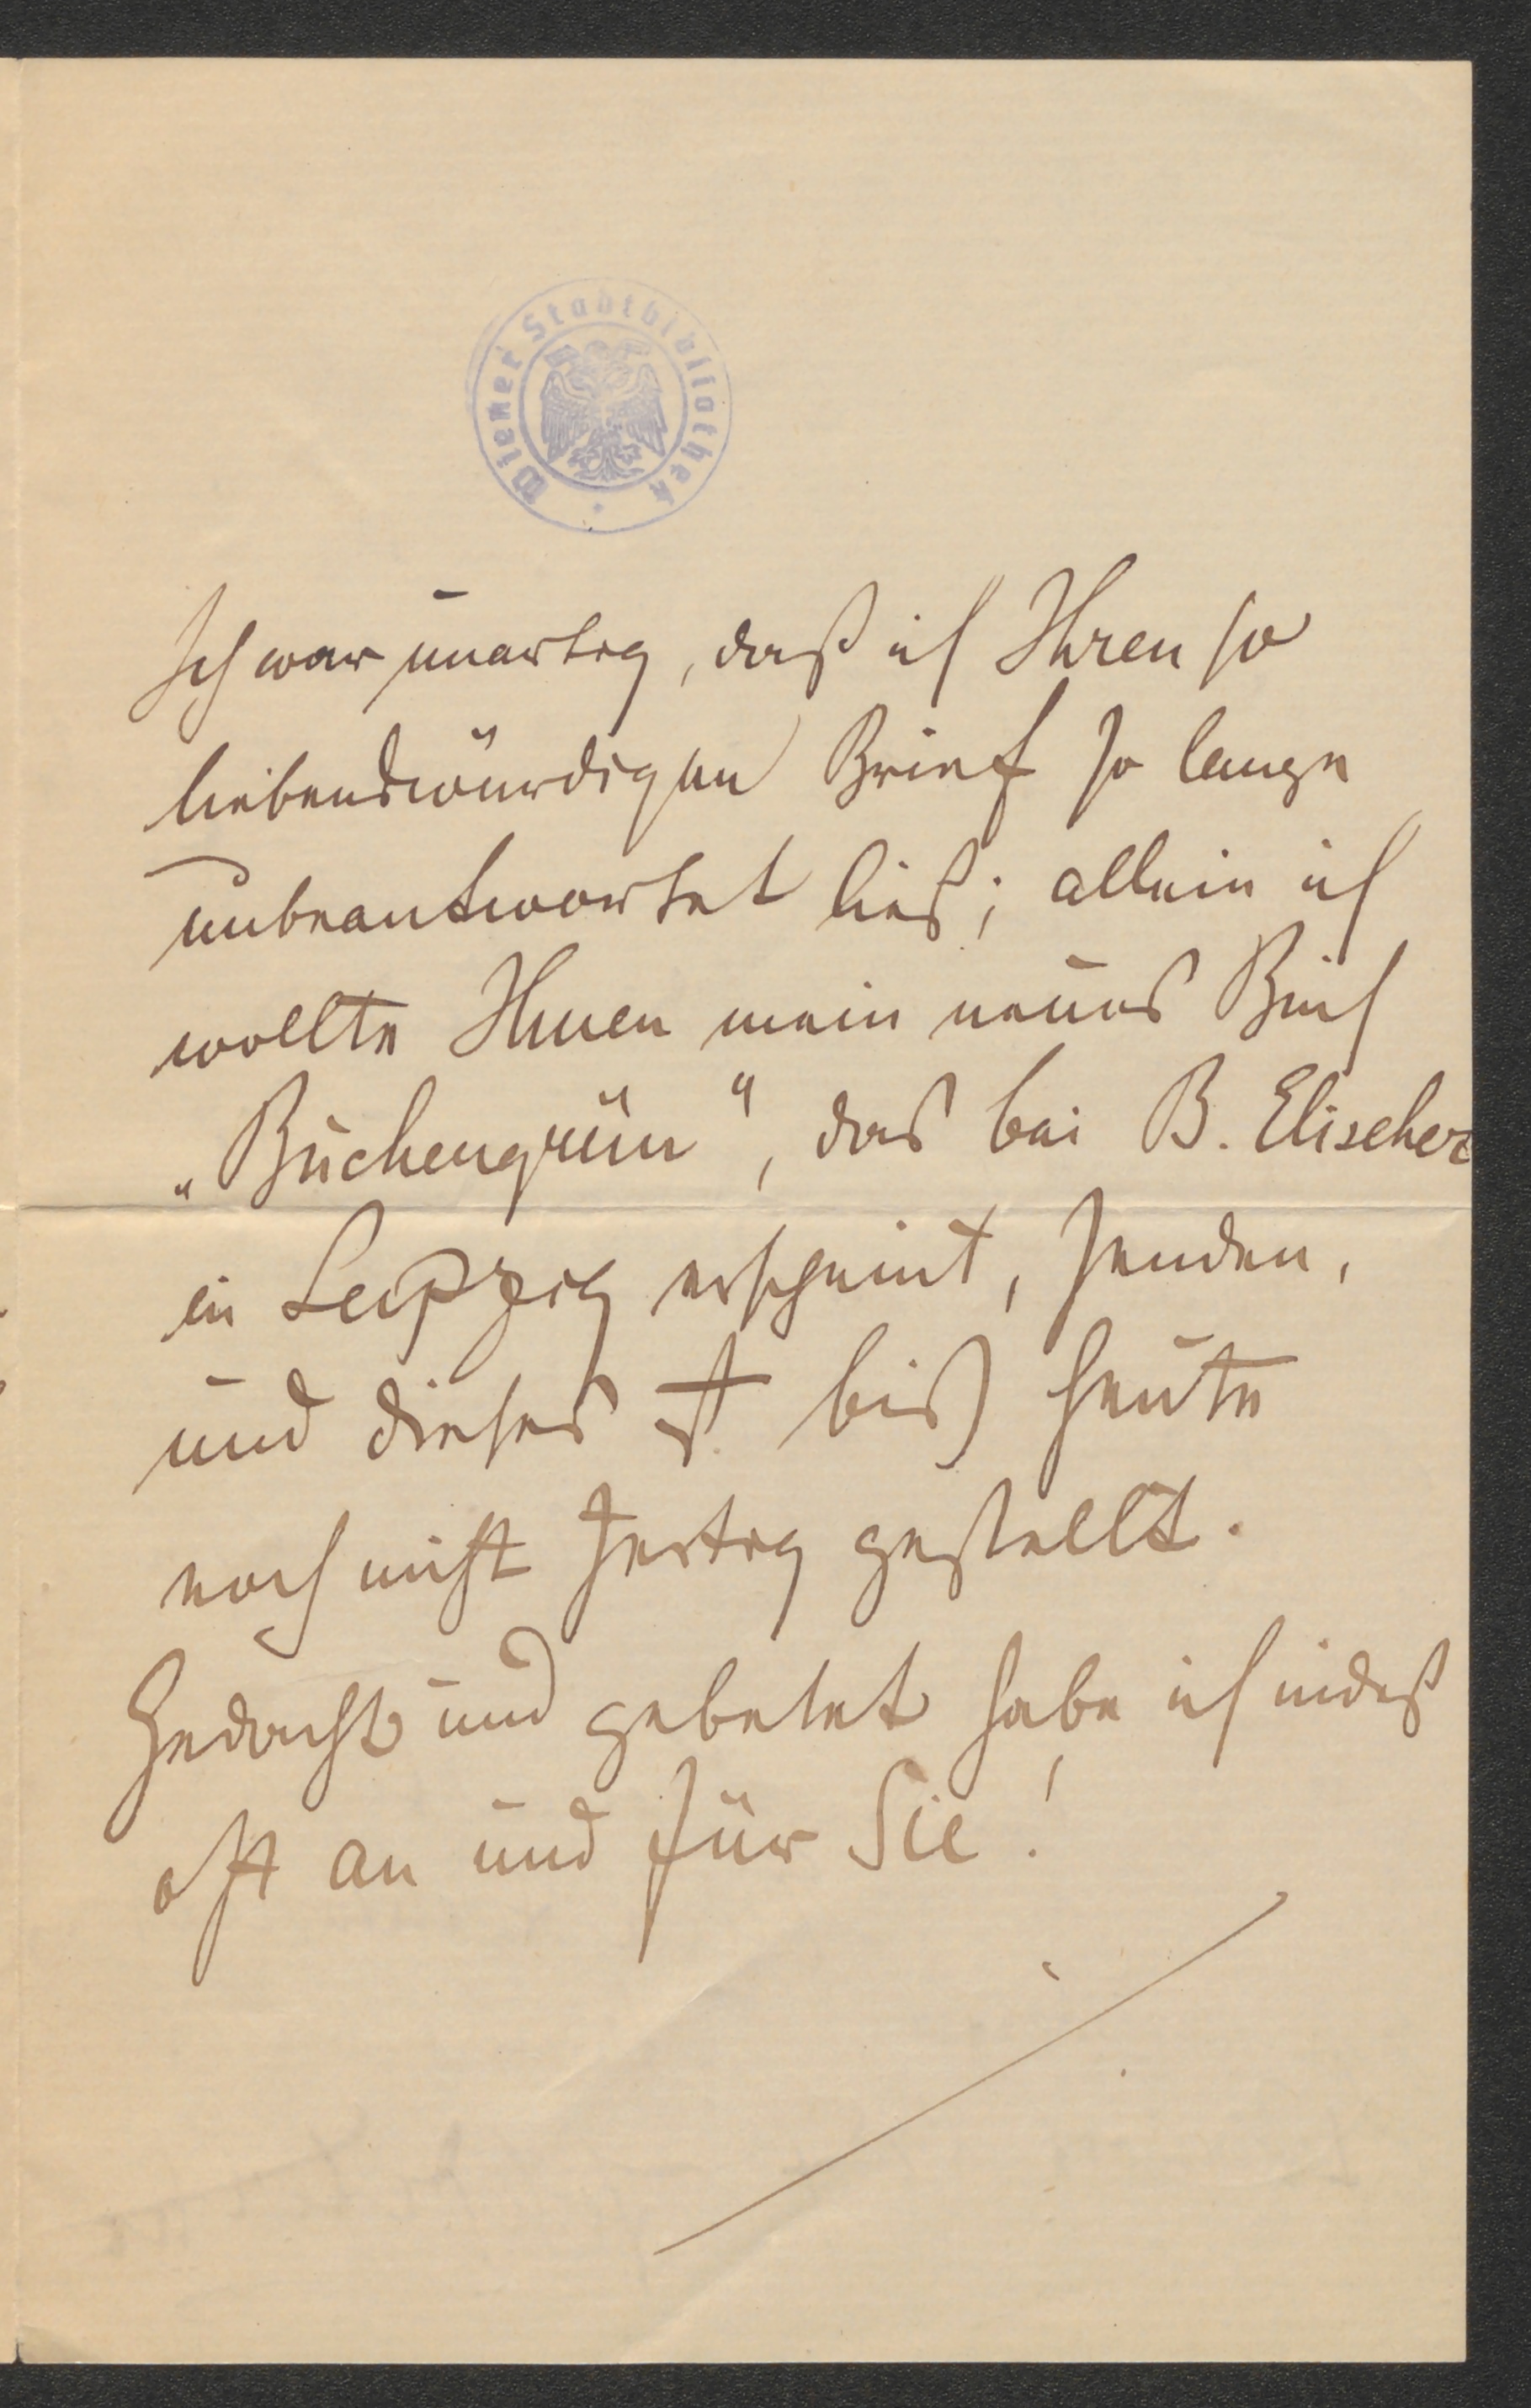 Wiener Stadtbibliothek
Ich war unartig, daß ich Ihren so
liebenswürdigen Brief so lange
unbeantwortet ließ; allein ich
wollte Ihnen mein neues Buch
„Buchengrün“, das bei B. Elischer
in Leipzig erscheint, senden,
und dieses ist bis heute
noch nicht fertig gestellt.
Gedacht und gebetet habe ich indeß
oft an und für Sie!